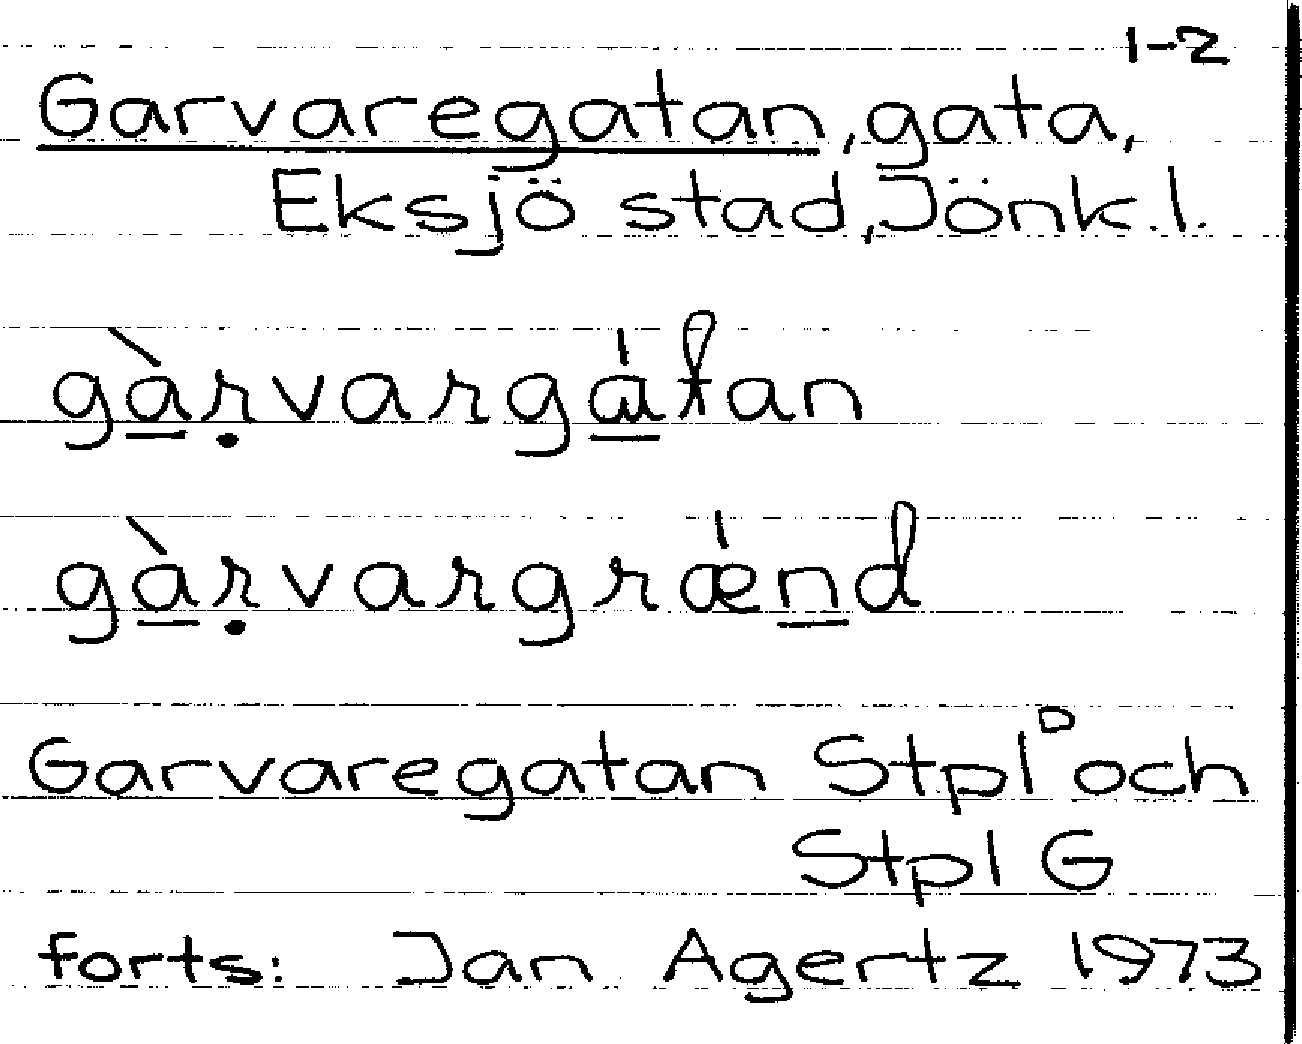 1-2
Garvaregatan, gata,
Eksjö stad, Jönk. l.
gàṛvargátan
gàṛvargrǽnd
Garvaregatan Stpl° och
Stpl G
forts: Jan Agertz 1973